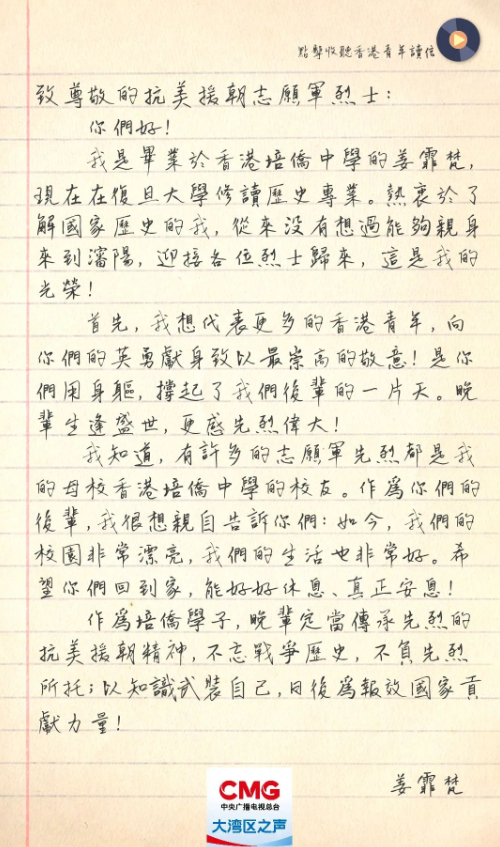 點擊收聽香港青年讀信
致尊敬的抗美援朝志願軍烈士：
你們好！
我是畢業於香港培僑中學的姜霏梵，
現在在復旦大學修讀歷史專業。熱衷於了
解國家歷史的我，從來没有想過能夠親身
來到瀋陽，迎接各位烈士歸來，這是我的
光榮！
首先，我想代表更多的香港青年，向
你們的英勇獻身致以最崇高的敬意！是你
們用身軀，撐起了我們後輩的一片天。晚
輩生逢盛世，更感先烈偉大！
我知道，有許多的志願軍先烈都是我
的母校香港培僑中學的校友。作爲你們的
後輩，我很想親自告訴你們：如今，我們的
校園非常漂亮，我們的生活也非常好。希
望你們回到家，能好好休息、真正安息！
作爲培僑學子，晚輩定當傳承先烈的
抗美援朝精神，不忘戰爭歷史，不負先烈
所托；以知識武裝自己，日後爲報效國家貢
獻力量！
姜霏梵
CMG
中央广播电视总台
大湾区之声